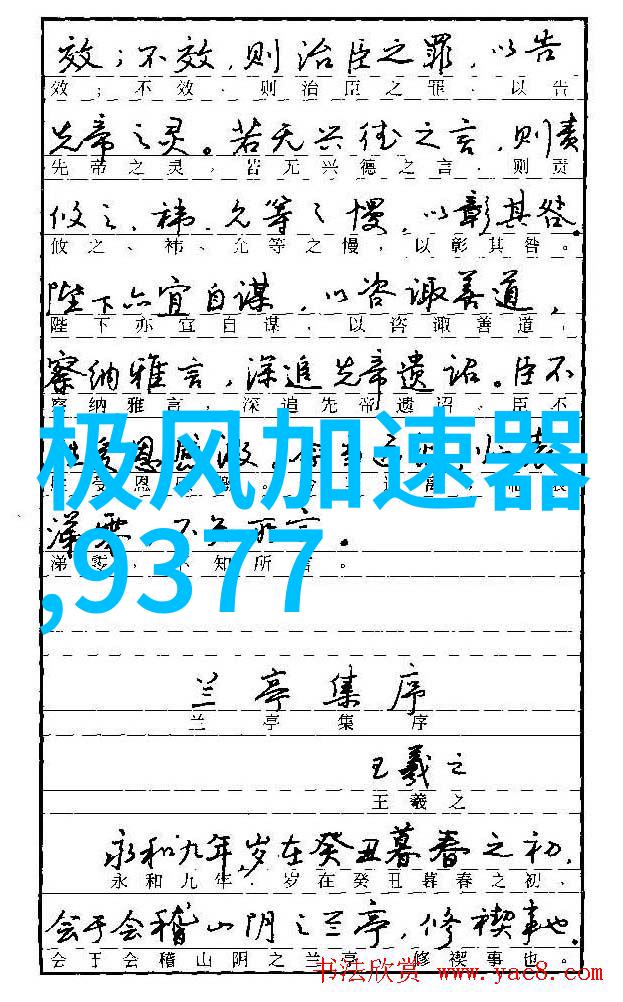 效；不效，则治臣之罪，以告
效；不效、则治臣之罪、以告
先帝之灵。若无兴德之言，则责
先帝之灵，若无兴德之言、则责
攸之、祎、允等之慢，以彰其咎。
攸之、祎、允等之慢，以彰其咎。
陛下亦宜自谋，以咨诹善道，
陛下亦宜自谋，以咨诹善道，
察纳雅言，深追先帝遗诏。臣不
察纳雅言，深追先帝遗诏。臣不
极风加速器
,9377
不知所言。
不知所言。
兰亭集序
兰亭集序
王羲之
王羲之
永和九年，岁在癸丑暮春之初，
永和九年，岁在癸丑暮春之初、
会于会稽山阴之兰亭，修禊事也。
会于会稽山阴之兰亭，修禊事也。
书法欣赏 www.yac8.com